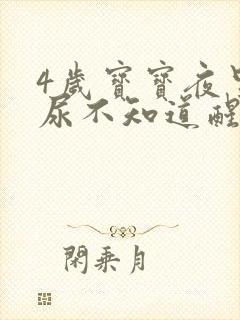 4歲寶寶夜里
尿不知道醒
閑乘月